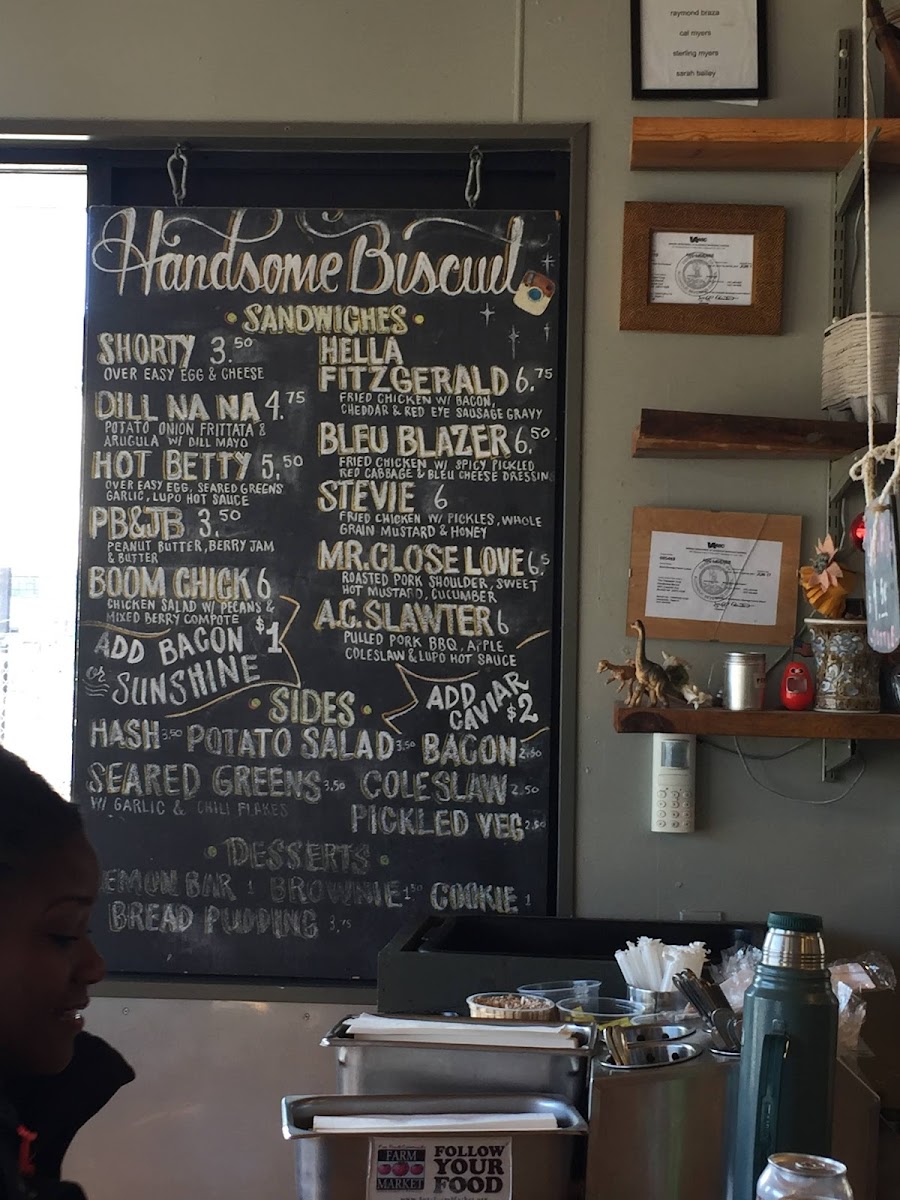 raymond braza
cal myers
sterling myers
sarah bailey
Handsome Biscuit
SANDWICHES
SHORTY 3.50
OVER EASY EGG & CHEESE
DILL NA NA 4.75
POTATO ONION FRITTATA &
ARUGULA W/ DILL MAYO
HOT BETTY 5.50
OVER EASY EGG, SEARED GREENS
GARLIC, LUPO HOT SAUCE
PB&JB 3.50
PEANUT BUTTER, BERRY JAM
& BUTTER
BOOM CHICK 6
CHICKEN SALAD W/ PECANS &
MIXED BERRY COMPOTE
ADD BACON $1
or SUNSHINE
HELLA
FITZGERALD 6.75
FRIED CHICKEN W/ BACON,
CHEDDAR & RED EYE SAUSAGE GRAVY
BLEU BLAZER 6.50
FRIED CHICKEN W/ SPICY PICKLED
RED CABBAGE & BLEU CHEESE DRESSIN
STEVIE 6
FRIED CHICKEN W/ PICKLES, WHOLE
GRAIN MUSTARD & HONEY
MR. CLOSE LOVE 6.5
ROASTED PORK SHOULDER, SWEET
HOT MUSTARD, CUCUMBER
A.C. SLAWTER 6
PULLED PORK BBQ, APPLE
COLESLAW & LUPO HOT SAUCE
ADD
CAVIAR
$2
SIDES
HASH 3.50 POTATO SALAD 3.50 BACON 2.50
SEARED GREENS 3.50 COLESLAW 2.50
W/ GARLIC & CHILI FLAKES
PICKLED VEG 2.50
DESSERTS
LEMON BAR 1 BROWNIE 1.50 COOKIE 1
BREAD PUDDING 3.75
FARM
MARKET
FOLLOW
YOUR
FOOD